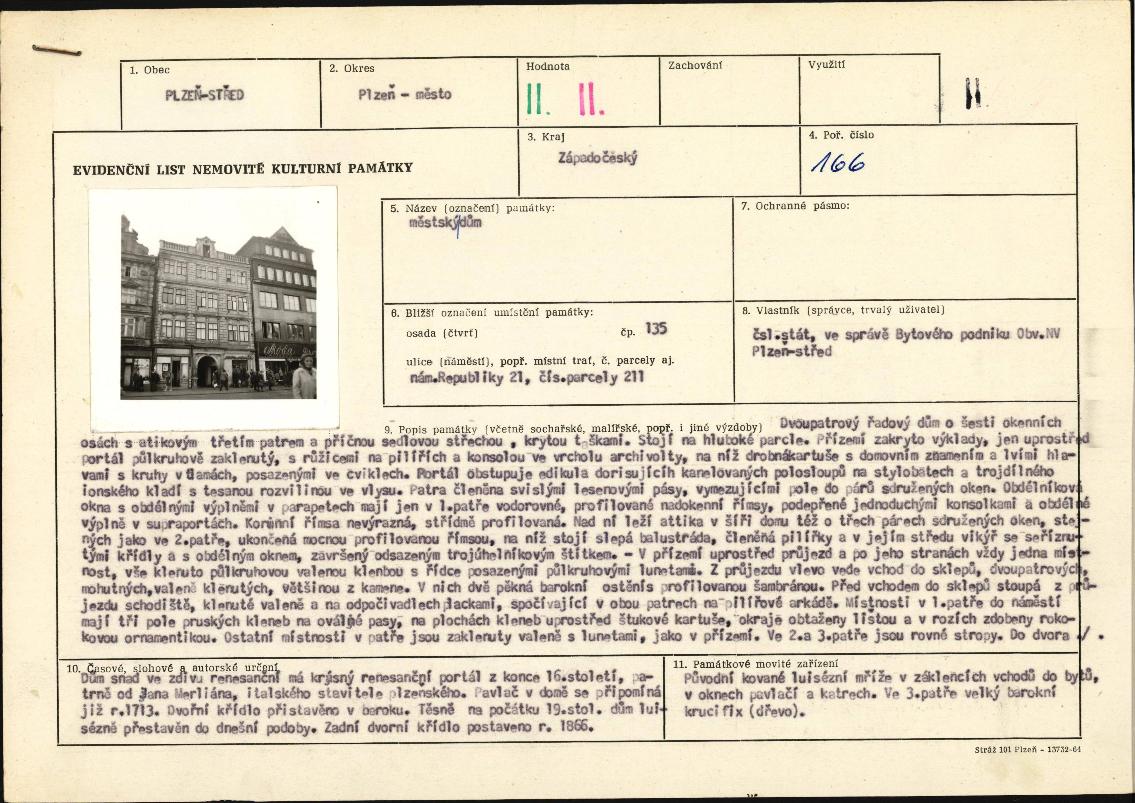 1. Obec
PLZEŇ-STŘED
2. Okres
Plzeň - město
Hodnota
II. II.
Zachování
Využití
II
EVIDENČNÍ LIST NEMOVITÉ KULTURNÍ PAMÁTKY
3. Kraj
Západočeský
4. Poř. číslo
166
5. Název (označení) památky:
městský dům
7. Ochranné pásmo:
6. Bližší označení umístění památky:
osada (čtvrť) čp. 135
ulice (náměstí), popř. místní trať, č. parcely aj.
nám.Republiky 21, čís.parcely 211
8. Vlastník (správce, trvalý uživatel)
čsl.stát, ve správě Bytového podniku Obv.NV
Plzeň-střed
9. Popis památky (včetně sochařské, malířské, popř. i jiné výzdoby) Dvoupatrový řadový dům o šesti okenních
osách s atikovým třetím patrem a příčnou sedlovou střechou , krytou taškami. Stojí na hluboké parcle. Přízemí zakryto výklady, jen uprostřed
portál půlkruhově zaklenutý, s růžicemi na pilířích a konsolou ve vrcholu archivolty, na níž drobnákartuše s domovním znamením a lvími hla-
vami s kruhy v tlamách, posazenými ve cviklech. Portál obstupuje edikula dorisujícíh kanelovaných polosloupů na stylobatech a trojdílného
ionského kladí s tesanou rozvilinou ve vlysu. Patra členěna svislými lesenovými pásy, vymezujícími pole do párů sdružených oken. Obdélníková
okna s obdélnými výplněmi v parapetech mají jen v 1.patře vodorovné, profilované nadokenní římsy, podepřené jednoduchými konsolkami a obdélné
výplně v supraportách. Korunní římsa nevýrazná, střídmě profilovaná. Nad ní leží attika v šíři domu též o třech párech sdružených oken, stej-
ných jako ve 2.patře, ukončená mocnou profilovanou římsou, na níž stojí slepá balustráda, členěná pilířky a v jejím středu vikýř se seříznu-
tými křídly a s obdélným oknem, završený odsazeným trojúhelníkovým štítkem. - V přízemí uprostřed průjezd a po jeho stranách vždy jedna míst-
nost, vše klenuto půlkruhovou valenou klenbou s řídce posazenými půlkruhovými lunetami. Z průjezdu vlevo vede vchod do sklepů, dvoupatrových,
mohutných,valeně klenutých, většinou z kamene. V nich dvě pěkná barokní ostěnís profilovanou šambránou. Před vchodem do sklepů stoupá z prů-
jezdu schodiště, klenuté valeně a na odpočívadlech plackami, spočívající v obou patrech na pilířové arkádě. Místnosti v 1.patře do náměstí
mají tři pole pruských kleneb na oválné pasy, na plochách kleneb uprostřed štukové kartuše, okraje obtaženy lištou a v rozích zdobeny roko-
kovou ornamentikou. Ostatní místnosti v patře jsou zaklenuty valeně s lunetami, jako v přízemí. Ve 2.a 3.patře jsou rovné stropy. Do dvora ./.
10. Časové, slohové a autorské určení
Dům snad ve zdivu renesanční má krásný renesanční portál z konce 16.století, pa-
trně od Jana Merliána, italského stavitele plzeňského. Pavlač v domě se připomíná
již r.1713. Dvořní křídlo přistavěno v baroku. Těsně na počátku 19.stol. dům lui-
sézně přestavěn do dnešní podoby. Zadní dvorní křídlo postaveno r. 1866.
11. Památkové movité zařízení
Původní kované luisézní mříže v záklencích vchodů do bytů,
v oknech pavlačí a katrech. Ve 3.patře velký barokní
krucifix (dřevo).
Stráž 101 Plzeň - 13732-64